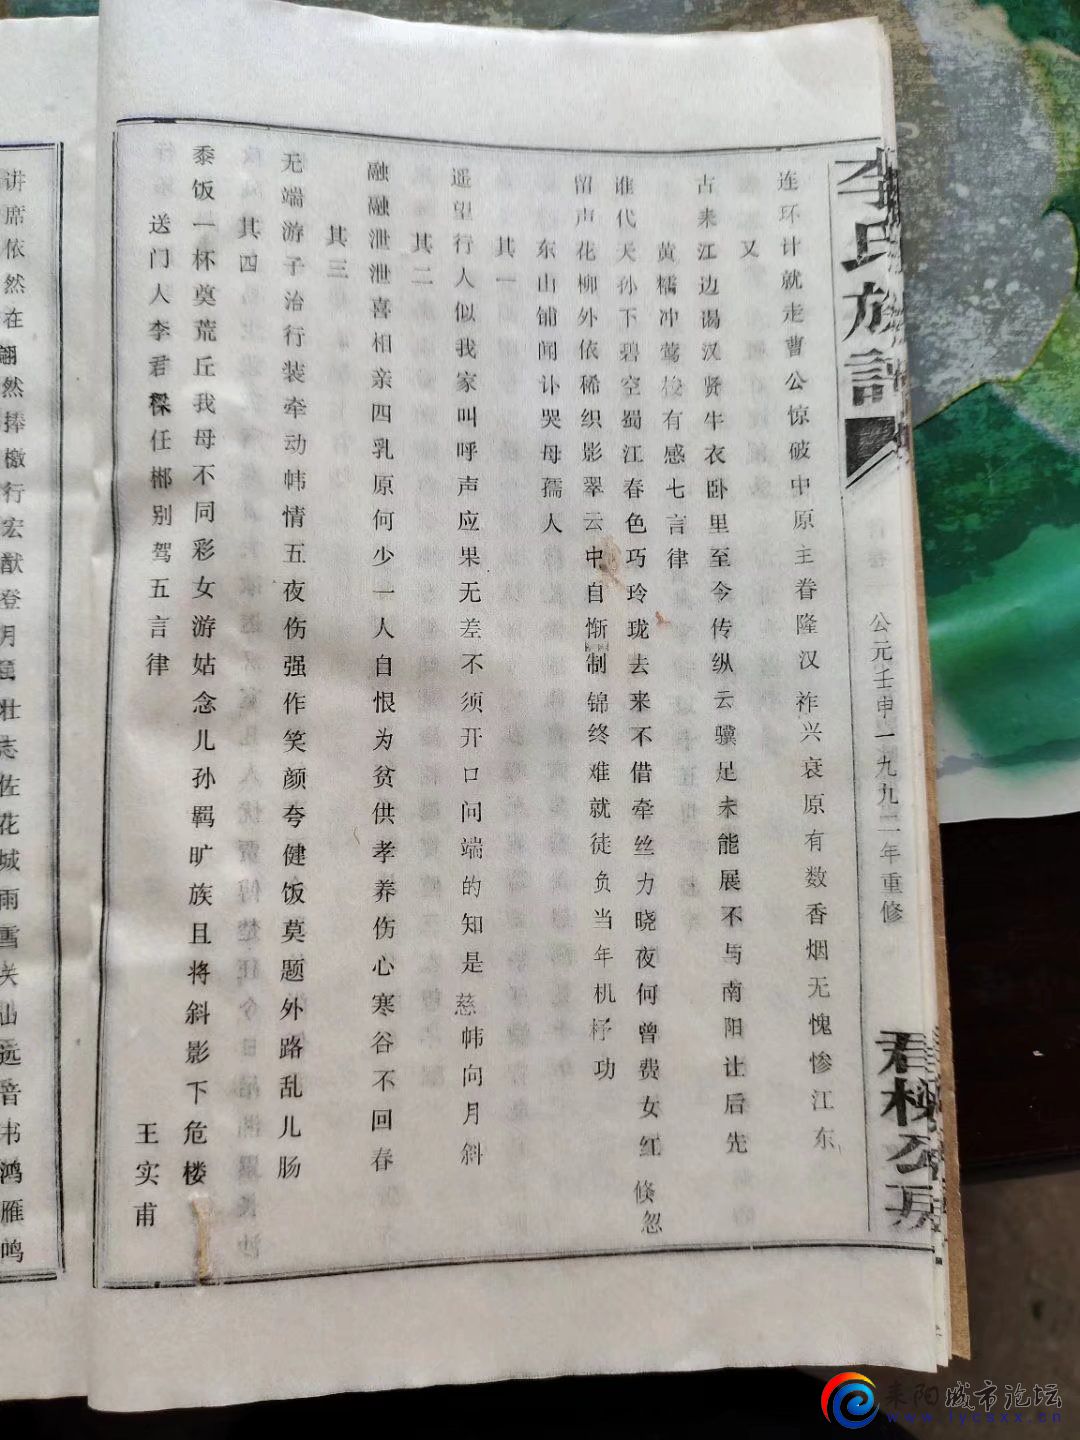 李氏族譜
公元壬申一九九二年重修
君樑公房
连环计就走曹公惊破中原主眷隆汉祚兴衰原有数香烟无愧惨江东
又
古来江边谒汉贤牛衣卧里至今传纵云骥足未能展不与南阳让后先
黄糯冲莺梭有感七言律
谁代天孙下碧空蜀江春色巧玲珑去来不借牵丝力晓夜何曾费女红 倏忽
留声花柳外依稀织影翠云中自惭制锦终难就徒负当年机杼功
东山铺闻讣哭母孺人
其一
遥望行人似我家叫呼声应果无差不须开口问端的知是慈帏向月斜
其二
融融泄泄喜相亲四乳原何少一人自恨为贫供孝养伤心寒谷不回春
其三
无端游子治行装牵动帏情五夜伤强作笑颜夸健饭莫题外路乱儿肠
其四
黍饭一杯奠荒丘我母不同彩女游姑念儿孙羁旷族且将斜影下危楼
送门人李君樑任郴别驾五言律
王实甫
讲席依然在翩然捧檄行宏猷登月 壮志佐花城雨雪关山远音书鸿雁鸣
耒阳城市论坛
www.lycsxx.cn